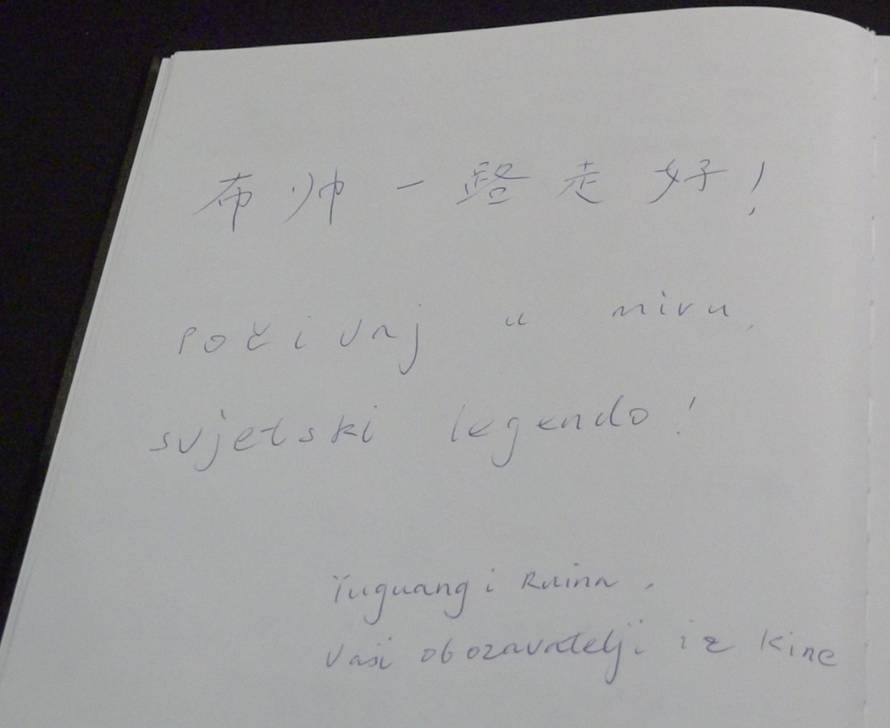 布帅一路走好！
Počivaj u miru,
svjetski legendo!
Yuguang i Ruina,
vaši obozavatelji iz Kine